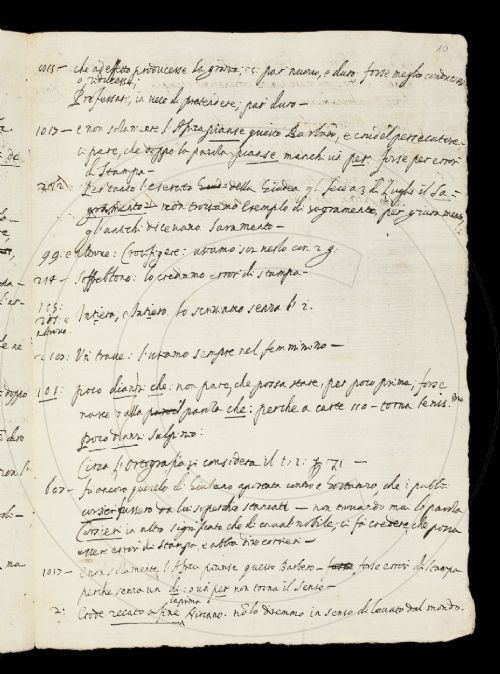 10
1015 – che ad effetto producesse la grazia; ci par nuovo, e duro, forse meglio conducesse
o, riducesse;
Professar, in vece di pretendere; par duro –
1013 – e non solamente l'Africa pianse questo Barbaro, e crudel persecutore:
ci pare, che doppo la parola pianse manchi un per forse per error
di Stampa –
Per tanto l'esercito della Giudea gli fece a 3 di Luglio il Sa=
gramento – non troviamo esempio di sagramento, per giuramento,
gli antichi dicevano Saramento –
99: e altrove: Crocifigere: usiamo scriverlo con 2 g.
214 – soffettono: lo crediamo error di stampa –
115:
207: e Intiero, e Intiero. lo scriviamo senza l'i.
altrove
2100: Un trave: l'usiamo sempre nel femminino –
101: poco dianzi che: non pare, che possa stare, per poco prima, forse
nasce dalla parola che: perche a carte 110 – torna benissimo
poco dianzi Sulpizio:
Circa l'Ortografia si considera il
607 – fu ancora querelo di Giuliano contro e che i publi
corsieri fussero da lui soperchio stancati – non trovando mai la parola
Corsieri in altro significato che di caval nobile, ci fa credere che possa
essere error di stampa, e abbia dire corrieri –
1013 – e non solamente l'Africa pianse questo Barbaro – forse error di stampa
perche senza un di: o un per non torna il senso –
2: Erode recato a fine Hircano. nol diremmo in senso di levato dal mondo.